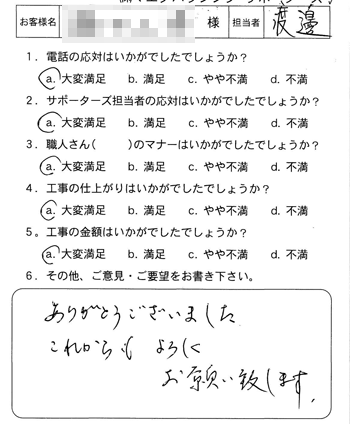 お客様名 様 担当者 渡邊
1．電話の応対はいかがでしたでしょうか？
a. 大変満足 b. 満足 c. やや不満 d. 不満
2．サポーターズ担当者の応対はいかがでしたでしょうか？
a. 大変満足 b. 満足 c. やや不満 d. 不満
3．職人さん(　　　)のマナーはいかがでしたでしょうか？
a. 大変満足 b. 満足 c. やや不満 d. 不満
4．工事の仕上がりはいかがでしたでしょうか？
a. 大変満足 b. 満足 c. やや不満 d. 不満
5。工事の金額はいかがでしたでしょうか？
a. 大変満足 b. 満足 c. やや不満 d. 不満
6．その他、ご意見・ご要望をお書き下さい。
ありがとうございました
これからも よろしく
お願い致します。